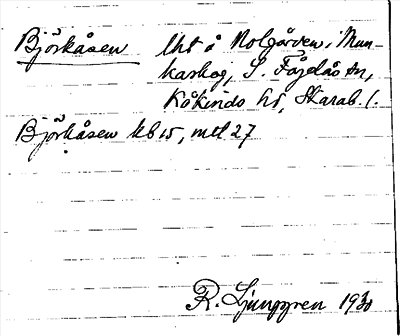 Björkåsen lht å Nolgården, Mun-
kaskog, S. Fågelås sn,
Kåkinds hd, Skarab. l.
Björkåsen kb 15, mtl 27
R. Ljunggren 1930